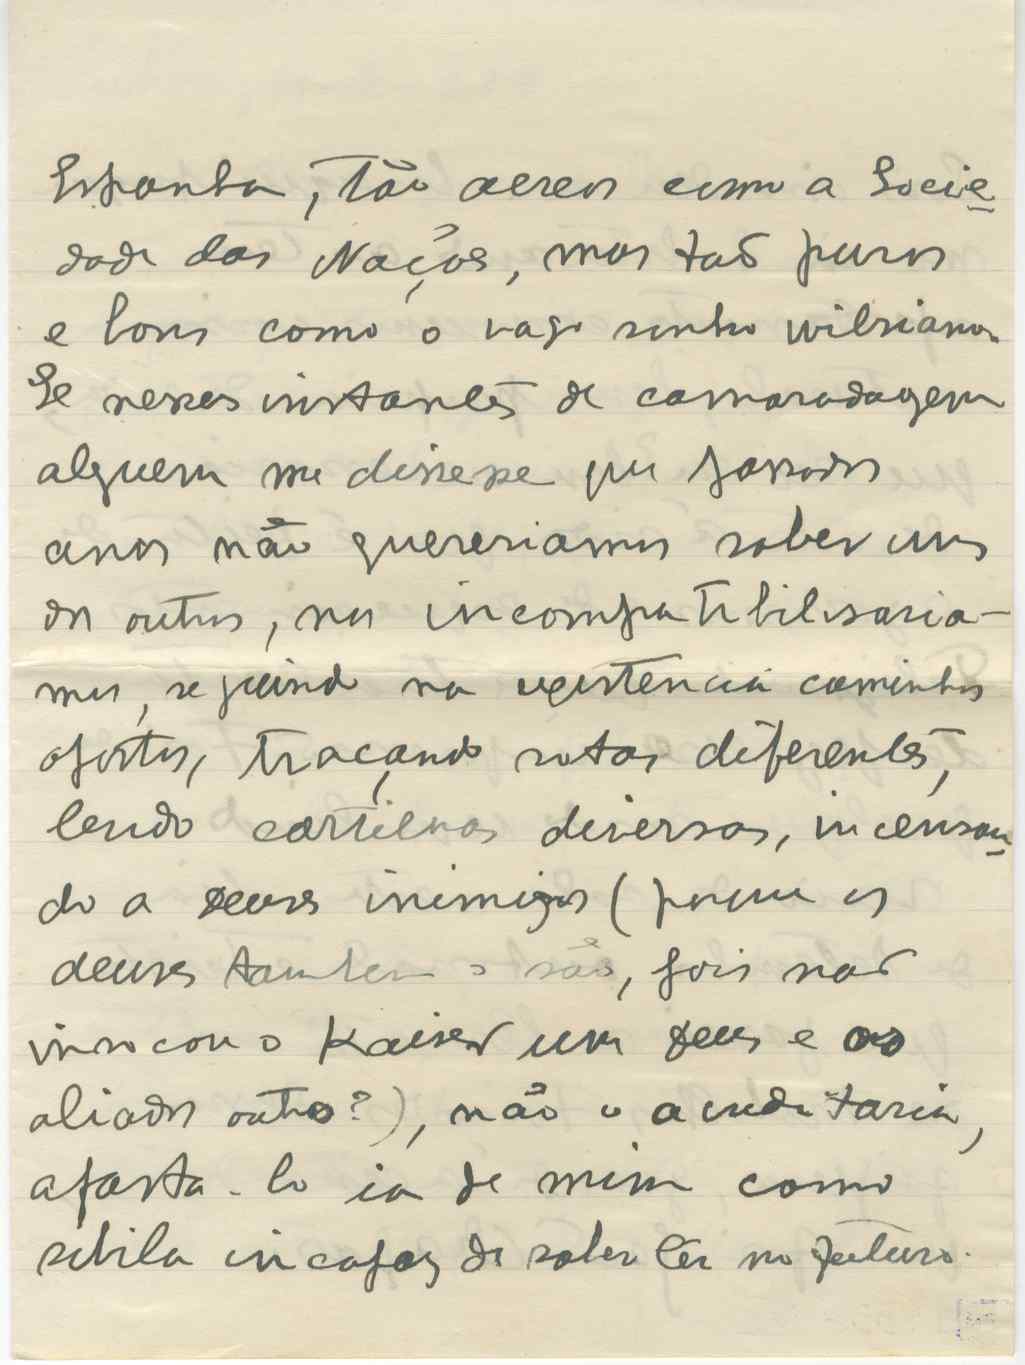 Espanha, tão aereos como a Socie-
dade das Nações, mas taõ puros
e bons como o vago sonho wilsiano.
Se nesses instantes de camaradagem
alguem me dissesse que passados
anos não quereriamos saber uns
dos outros, nos incompatibilisaria-
mos, seguindo na existencia caminhos
opostos, traçando rotas diferentes,
lendo cartilhas diversas, incensan-
do a deuses inimigos (porque os
deuses tambem o são, pois naõ
invocou o Kaiser um deus e os
aliados outro?), não o acreditaria,
afasta-lo ia de mim como
sibila incapaz de saber lêr no futuro.